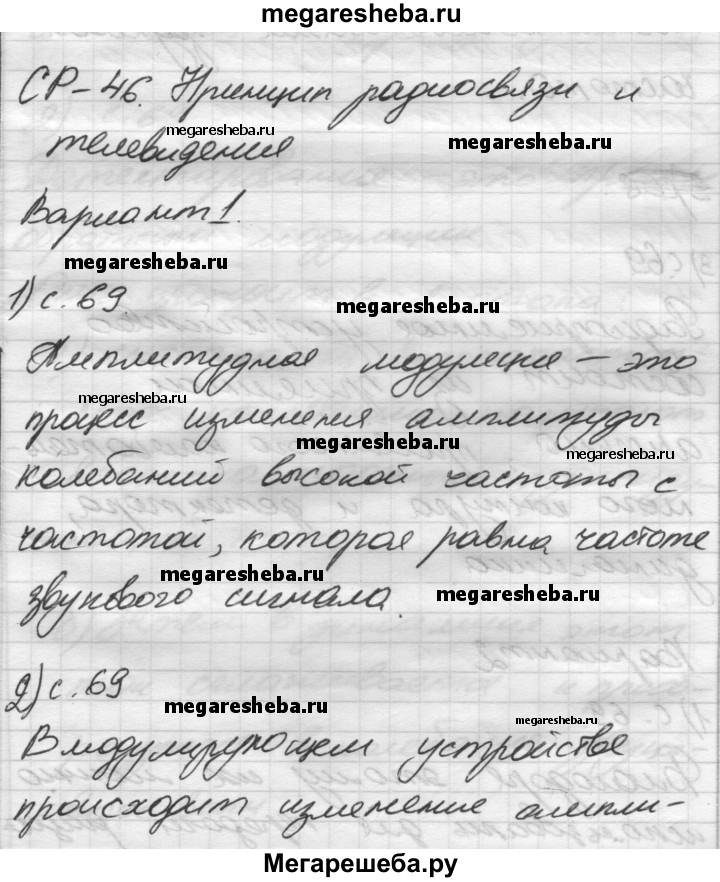 megaresheba.ru
СР-46. Принцип радиосвязи и
megaresheba.ru
телевидения
megaresheba.ru
Вариант 1.
megaresheba.ru
1) с. 69
megaresheba.ru
Амплитудная модуляция – это
megaresheba.ru
процесс изменения амплитуды
megaresheba.ru
megaresheba.ru
колебаний высокой частоты с
частотой, которая равна частоте
megaresheba.ru
звукового сигнала.
megaresheba.ru
2) с. 69
megaresheba.ru
megaresheba.ru
В модулирующем устройстве
megaresheba.ru
происходит изменение ампли-
Мегарешеба.ру